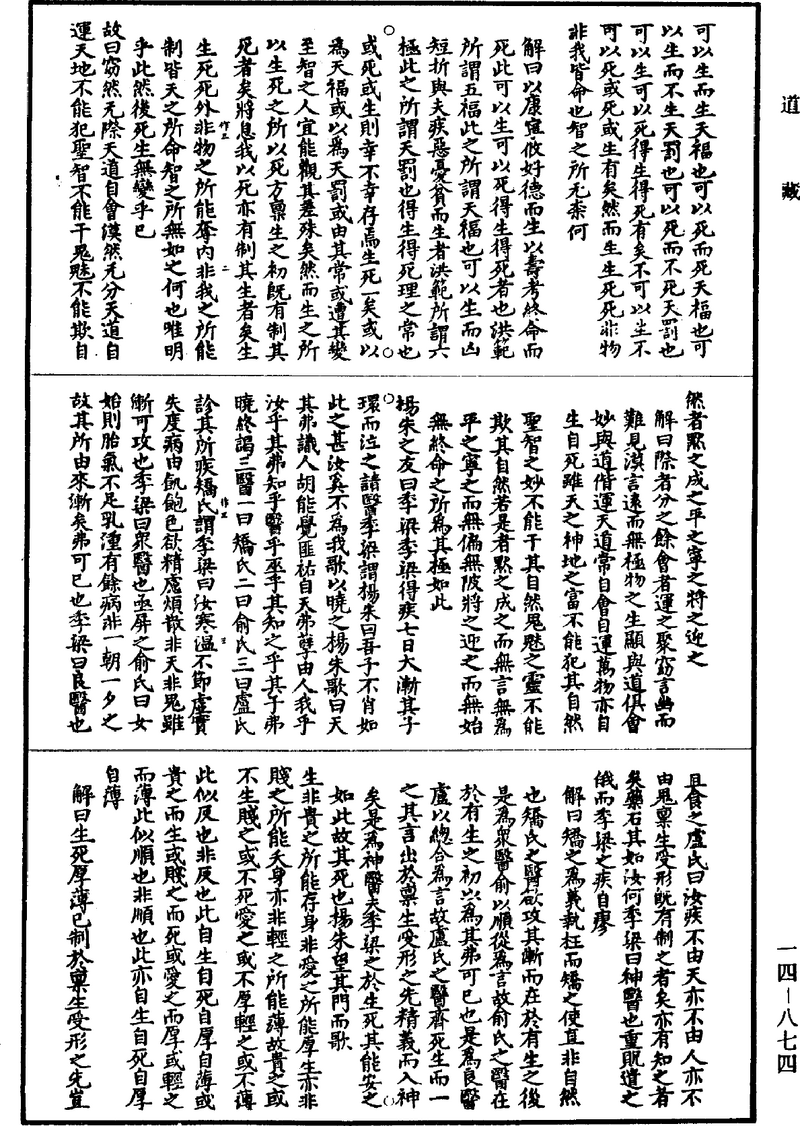 道藏
可以生而生天福也可以死而死天福也可
以生而不生天罰也可以死而不死天罰也
可以生可以死得生得死有矣不可以生不
可以死或死或生有矣然而生生死死非物
非我皆命也智之所无柰何
解曰以康寧攸好德而生以壽考終命而
死此可以生可以死得生得死者也洪範
所謂五福此之所謂天福也可以生而凶
短折與夫疾惡憂貧而生者洪範所謂六
極此之所謂天罰也得生得死理之常也
或死或生則幸不幸存焉生死一矣或以
為天福或以為天罰或由其常或遭其變
至智之人宜能觀其差殊矣然而生之所
以生死之所以死方稟生之初既有制其
死者矣將息我以死亦有制其生者矣生
生死死外非物之所能奪內非我之所能
制皆天之所命智之所無如之何也唯明
乎此然後死生無變乎己
故曰窈然无際天道自會漠然无分天道自
運天地不能犯聖智不能干鬼魅不能欺自
然者默之成之平之寧之將之迎之
解曰際者分之餘會者運之聚窈言幽而
難見漠言遠而無極物之生顯與道俱會
妙與道偕運天道常自會自運萬物亦自
生自死雖天之神地之富不能犯其自然
聖智之妙不能干其自然鬼魅之靈不能
欺其自然若是者默之成之而無言無為
平之寧之而無偏無陂將之迎之而無始
無終命之所為其極如此
楊朱之友曰季梁季梁得疾七日大漸其子
環而泣之請醫季梁謂楊朱曰吾子不肖如
此之甚汝奚不為我歌以曉之楊朱歌曰天
其弗識人胡能覺匪祐自天弗孽由人我乎
汝乎其弗知乎醫乎巫乎其知之乎其子弗
曉終謁三醫一曰矯氏二曰俞氏三曰盧氏
診其所疾矯氏謂季梁曰汝寒溫不節虛實
失度病由飢飽色欲精慮煩散非天非鬼雖
漸可攻也季梁曰眾醫也亟屏之俞氏曰女
始則胎氣不足乳湩有餘病非一朝一夕之
故其所由來漸矣弗可已也季梁曰良醫也
且食之盧氏曰汝疾不由天亦不由人亦不
由鬼稟生受形既有制之者矣亦有知之者
矣藥石其如汝何季梁曰神醫也重貺遣之
俄而季梁之疾自瘳
解曰矯之為義執枉而矯之使直非自然
也矯氏之醫欲攻其漸而在於有生之後
是為眾醫俞以順從為言故俞氏之醫在
於有生之初以為其弗可已也是為良醫
盧以總合為言故盧氏之醫齊死生而一
之其言出於稟生受形之先精義而入神
矣是為神醫夫季梁之於生死其能安之
如此故其死也楊朱望其門而歌
生非貴之所能存身非愛之所能厚生亦非
賤之所能夭身亦非輕之所能薄故貴之或
不生賤之或不死愛之或不厚輕之或不薄
此似反也非反也此自生自死自厚自薄或
貴之而生或賤之而死或愛之而厚或輕之
而薄此似順也非順也此亦自生自死自厚
自薄
解曰生死厚薄已制於稟生受形之先豈
一四－八七四